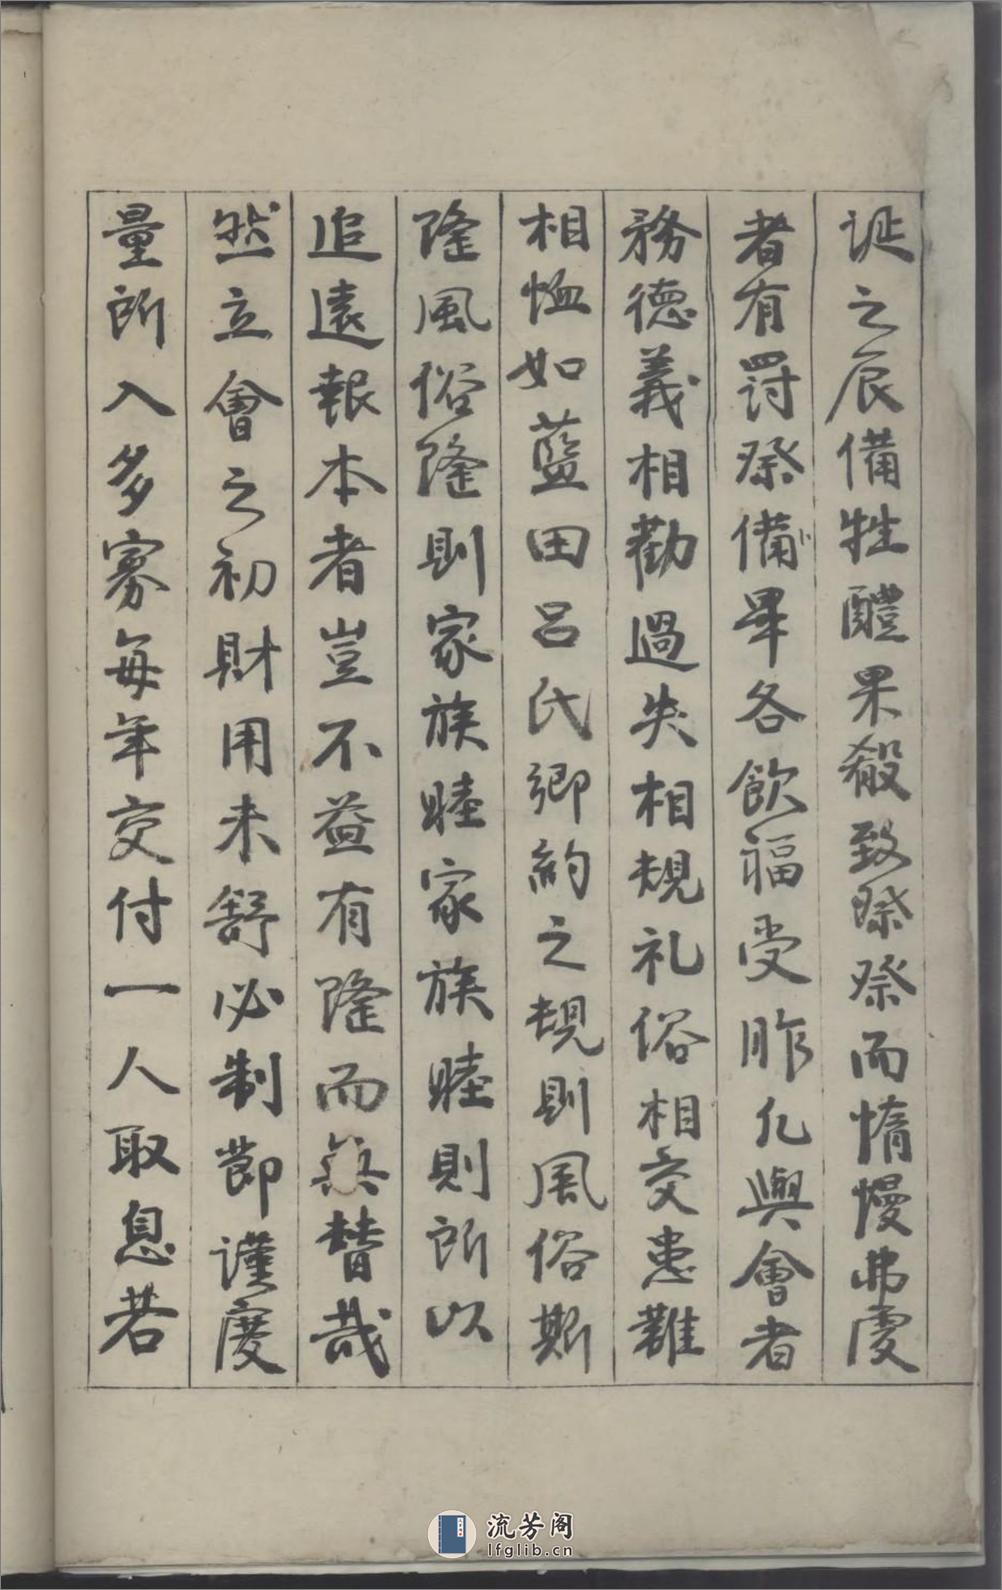 诞之辰備牲醴果殽致祭祭而惰慢弗虔
者有罰祭備畢各飲福受胙凢與會者
務德義相勸過失相規礼俗相交患難
相恤如藍田呂氏鄉約之規則風俗斯
隆風俗隆則家族睦家族睦則所以
追遠報本者豈不益有隆而無替哉
然立會之初財用未舒必制節谨度
量所入多寡每年交付一人取息若
流芳阁
lfglib.cn